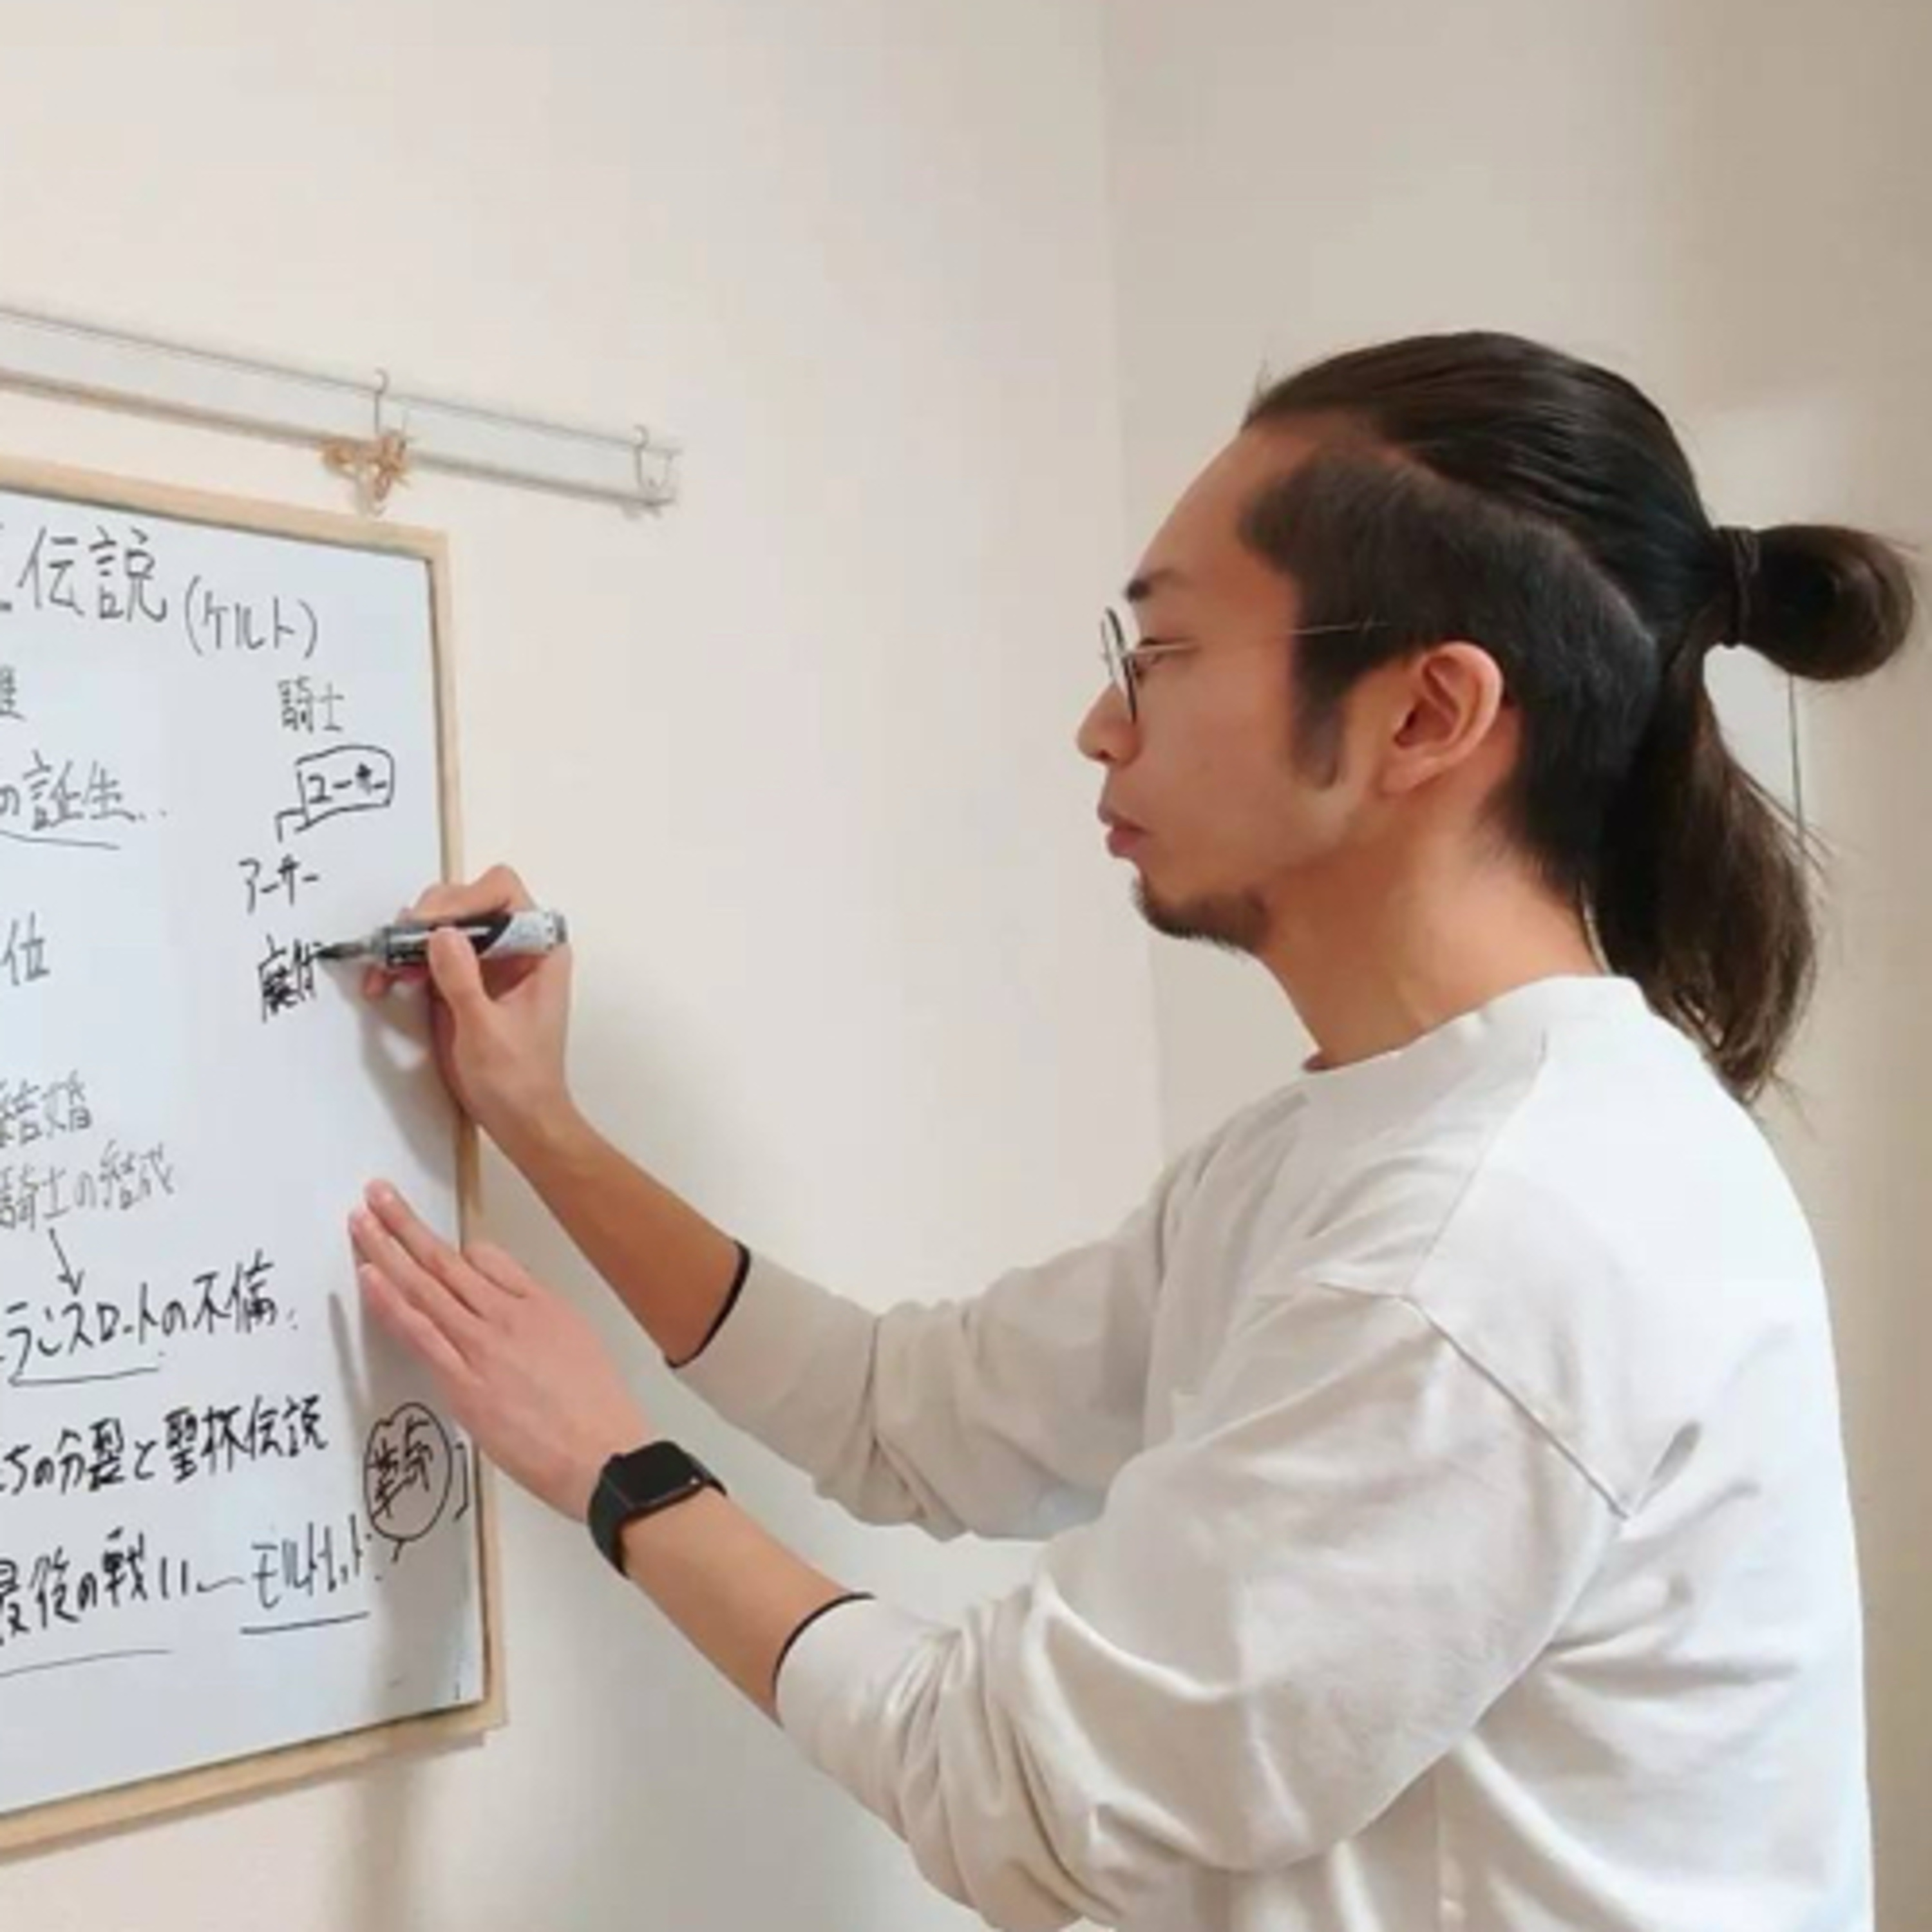 伝説(ケルト)
騎士
の誕生
ユーサー
アーサー
位
結婚
騎士の
ランスロットの不倫
ちの分裂と聖杯伝説
最後の戦い〜モルドレッド